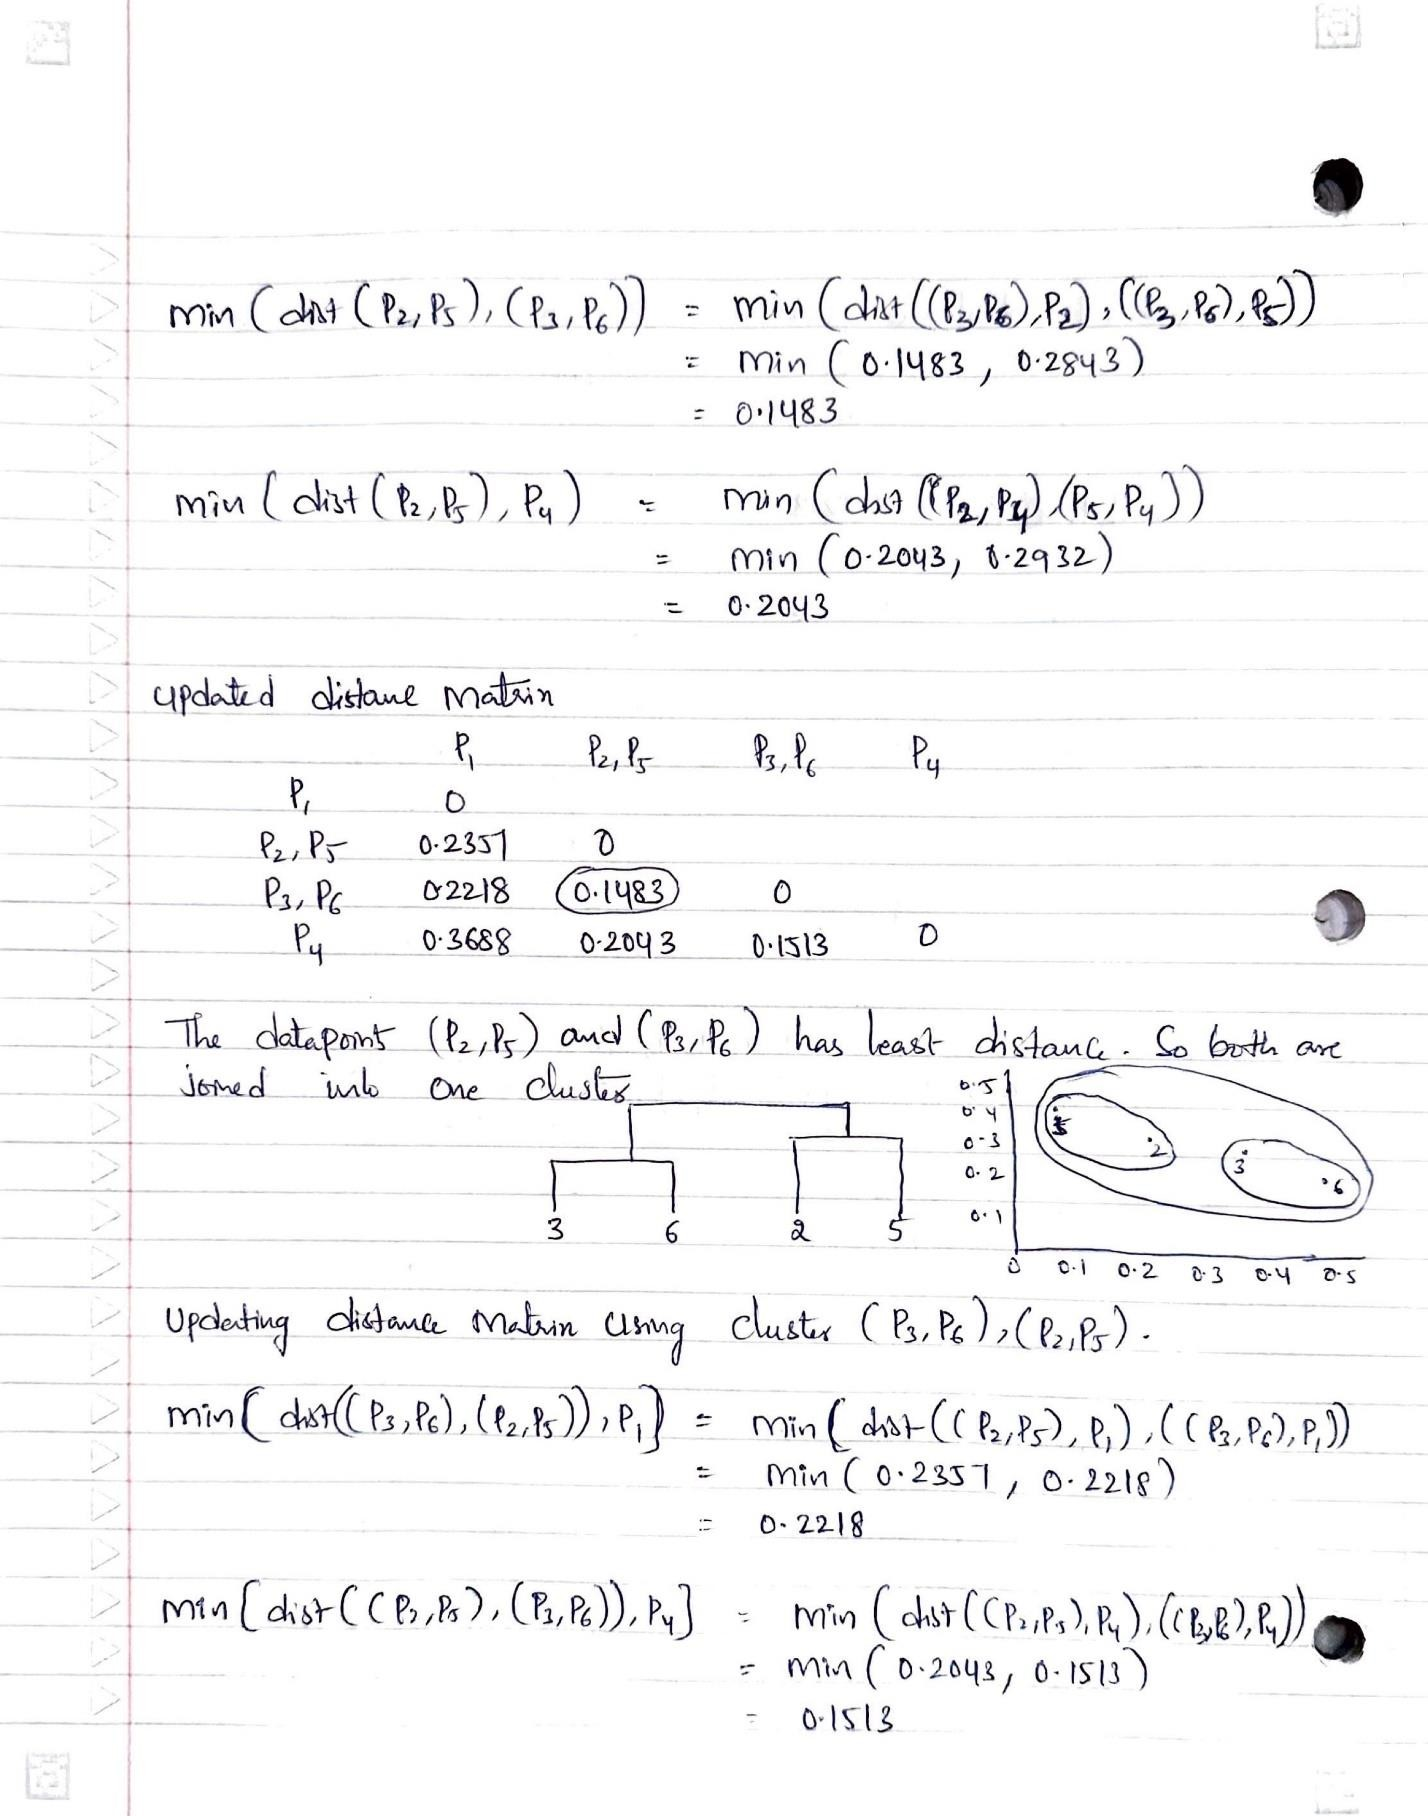 min ( dist (P2, P5), (P3, P6)) = min (dist ((P3,P6),P2), ((P3,P6),P5))
= min ( 0.1483, 0.2843)
= 0.1483
min ( dist ( P2, P5), P4) = min (dist ((P2, P4), (P5, P4))
= min (0.2043, 0.2932)
= 0.2043
updated distane Matrix
P1 P2, P5 P3, P6 P4
P1 0
P2, P5 0.2357 0
P3, P6 0.2218 0.1483 0
P4 0.3688 0.2043 0.1513 0
The datapoint (P2, P5) and (P3, P6) has least distance. So both are
joined into one cluster
0.5
0.4
0.3
0.2
0.1
5 2 3 6
3 6 2 5
0 0.1 0.2 0.3 0.4 0.5
Updating distance Matrix using cluster (P3, P6), (P2,P5).
min [ dist((P3,P6), (P2,P5)), P1] = min ( dist ((P2,P5), P1), ((P3,P6), P1))
= min ( 0.2357, 0.2218)
= 0.2218
min [ dist ((P2,P5), (P3,P6)), P4] = min ( dist ((P2,P5), P4), ((P3,P6), P4))
= min ( 0.2043, 0.1513)
= 0.1513